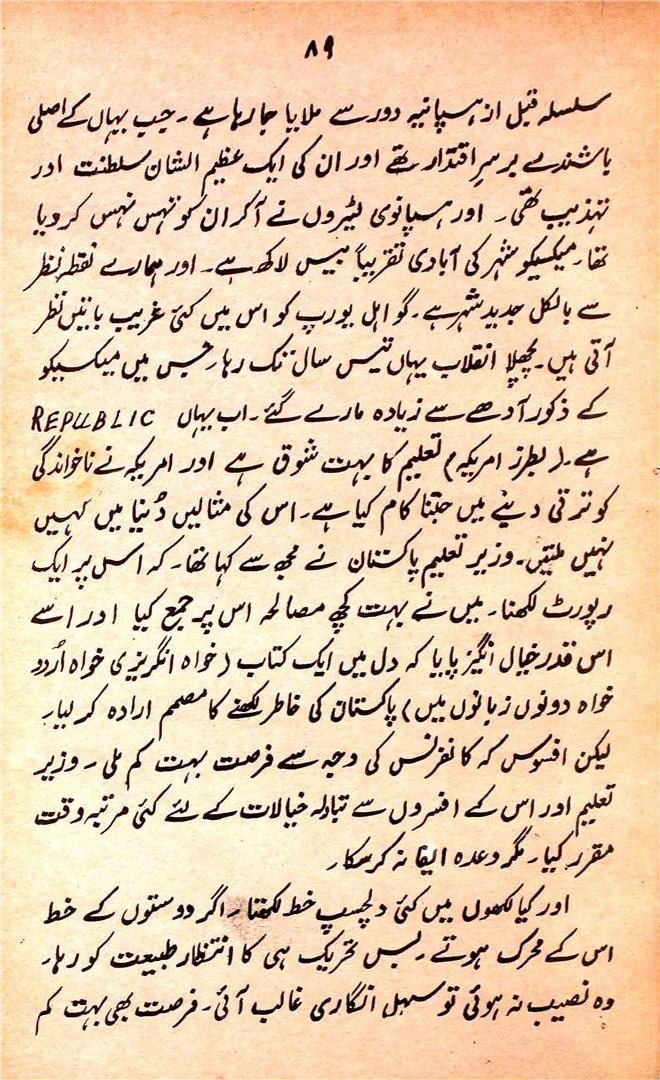 ۸۹
سلسلہ قبل از ہسپانیہ دور سے ملایا جا رہا ہے ۔ جب یہاں کے اصلی
باشندے برسرِ اقتدار تھے اور ان کی ایک عظیم الشان سلطنت اور
تہذیب تھی ۔ اور ہسپانوی لٹیروں نے آ کر ان کو تہس نہس کر دیا
تھا ۔ میکسیکو شہر کی آبادی تقریباً بیس لاکھ ہے ۔ اور ہمارے نقطۂ نظر
سے بالکل جدید شہر ہے ۔ گو اہل یورپ کو اس میں کئی غریب باتیں نظر
آتی ہیں ۔ پچھلا انقلاب یہاں تیس سال تک رہا ۔ جس میں میکسیکو
کے ذکور آدھے سے زیادہ مارے گئے ۔ اب یہاں REPUBLIC
ہے ۔ (بطرز امریکہ) تعلیم کا بہت شوق ہے اور امریکہ نے ناخواندگی
کو ترقی دینے میں جتنا کام کیا ہے ۔ اس کی مثالیں دُنیا میں کہیں
نہیں ملتیں ۔ وزیر تعلیم پاکستان نے مجھ سے کہا تھا ۔ کہ اس پر ایک
رپورٹ لکھنا ۔ میں نے بہت کچھ مصالحہ اس پر جمع کیا اور اسے
اس قدر خیال انگیز پایا کہ دل میں ایک کتاب (خواہ انگریزی خواہ اُردو
خواہ دونوں زبانوں میں) پاکستان کی خاطر لکھنے کا مصمم ارادہ کر لیا ۔
لیکن افسوس کہ کانفرنس کی وجہ سے فرصت بہت کم ملی ۔ وزیر
تعلیم اور اس کے افسروں سے تبادلہ خیالات کے لئے کئی مرتبہ وقت
مقرر کیا ۔ مگر وعدہ ایفا نہ کر سکا ۔
اور کیا لکھوں میں کئی دلچسپ خط لکھتا ۔ اگر دوستوں کے خط
اس کے محرک ہوتے ۔ بس تحریک ہی کا انتظار طبیعت کو رہا ۔
وہ نصیب نہ ہوئی تو سہل انگاری غالب آئی ۔ فرصت بھی بہت کم